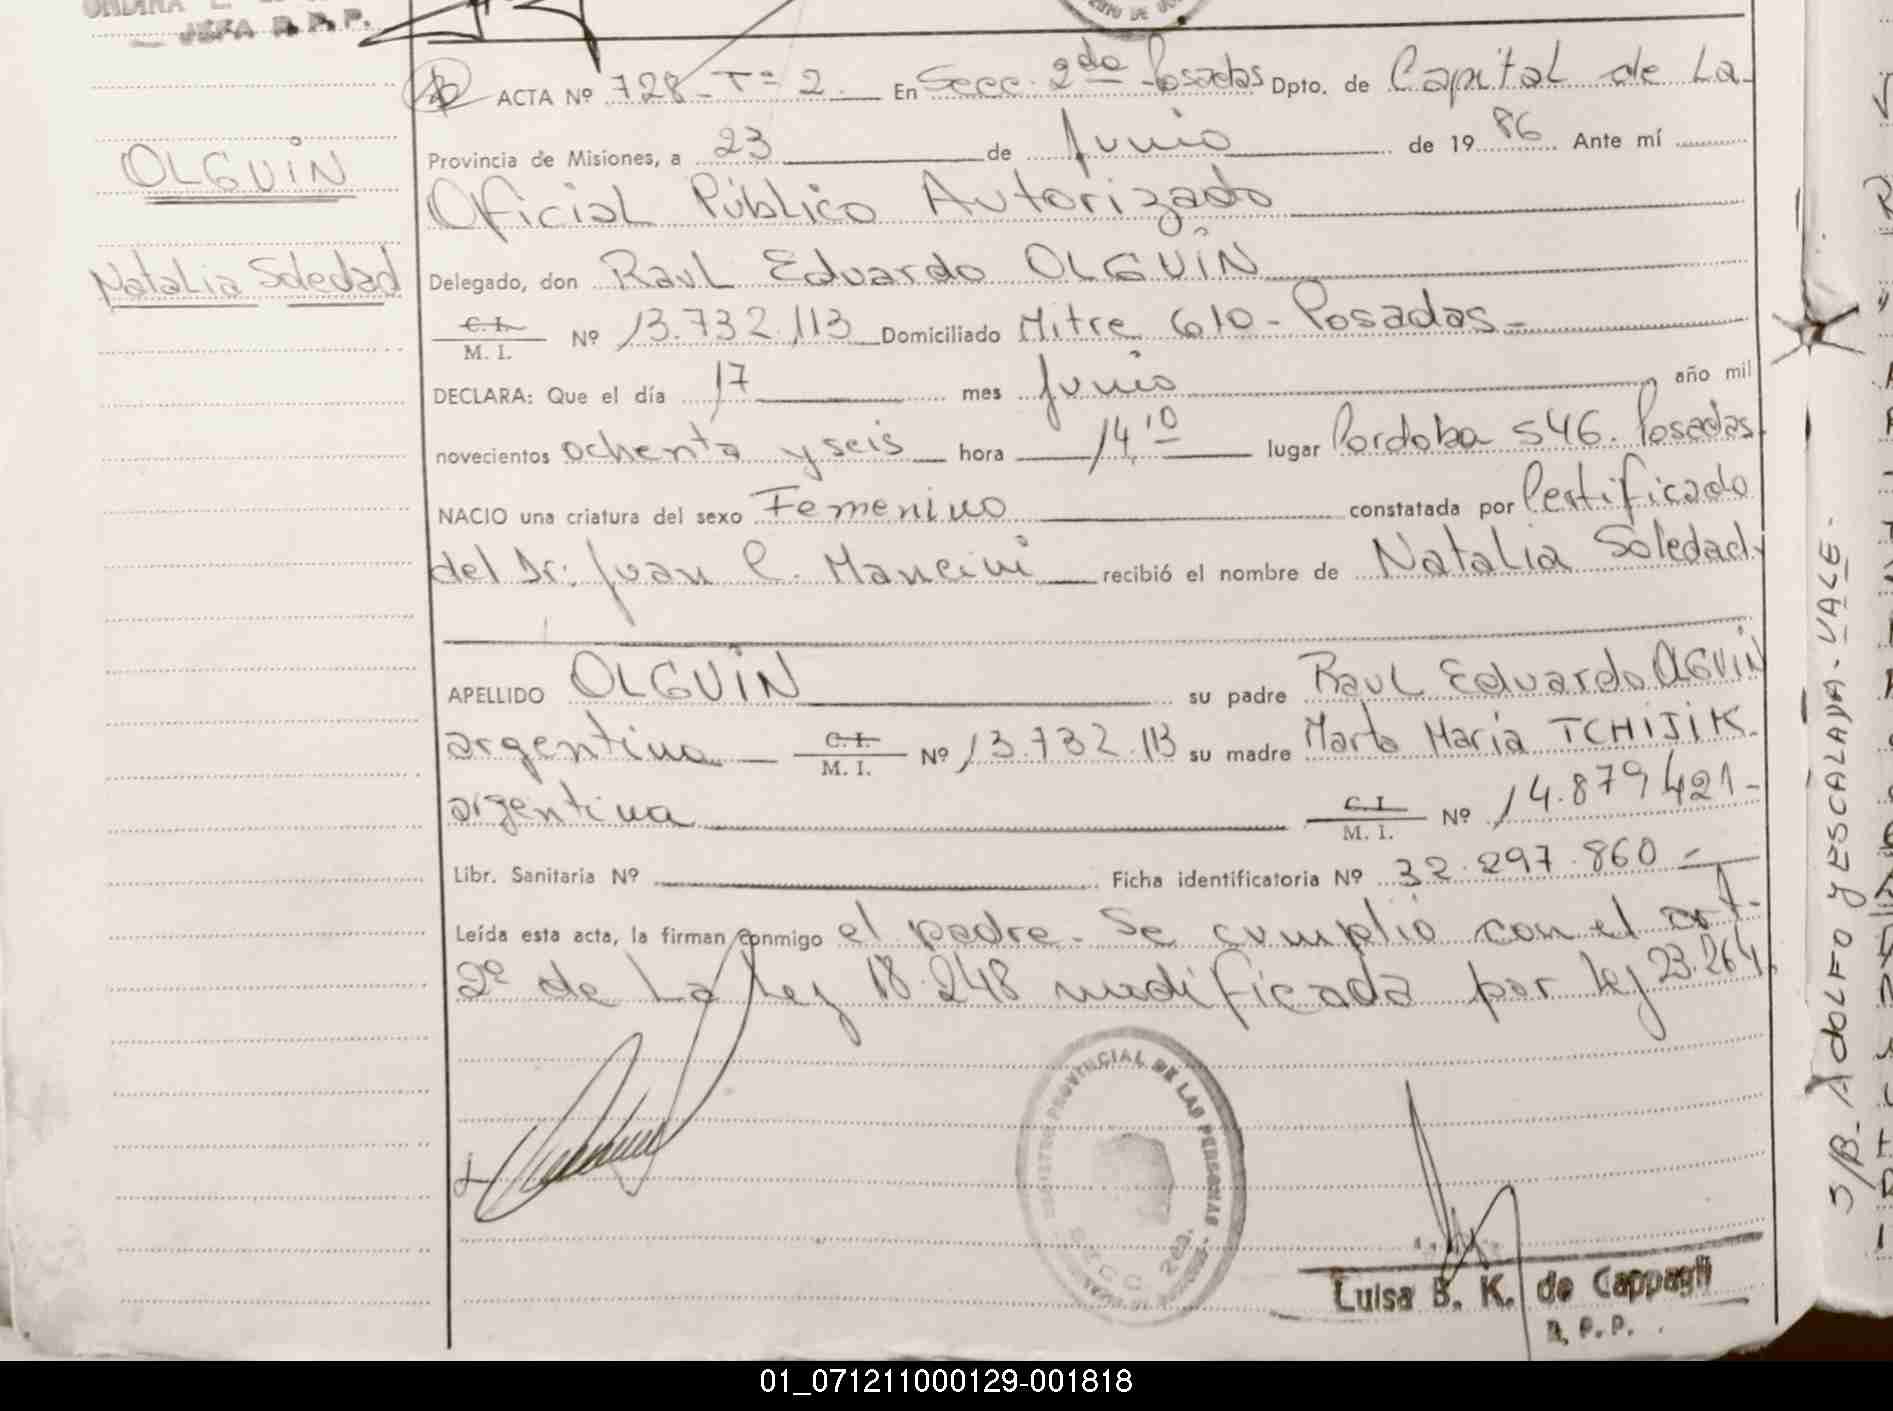 JEFA R.P.P.
ACTA Nº 728-Tº 2. En Secc. 2da Posadas Dpto. de Capital de La
Provincia de Misiones, a 23 de Junio de 1986 Ante mí
Oficial Público Autorizado
Delegado, don Raul Eduardo OLGUIN
C.I. M. I. Nº 13.732.113 Domiciliado Mitre 610 - Posadas -
DECLARA: Que el día 17 mes Junio, año mil
novecientos ochenta y seis hora 14,10 lugar Cordoba 546. Posadas
NACIO una criatura del sexo Femenino constatada por Certificado
del Dr. Juan C. Mancini recibió el nombre de Natalia Soledad
APELLIDO OLGUIN su padre Raul Eduardo OLGUIN
argentino C.I. M. I. Nº 13.732.113 su madre Marta Maria TCHIJIK
argentina C.I. M. I. Nº 14.879.421-
Libr. Sanitaria Nº Ficha identificatoria Nº 32.297.860 -
Leída esta acta, la firman conmigo el padre. Se cumplió con el art.
2º de la ley 18.248 modificada por ley 23.264
OLGUIN
Natalia Soledad
REGISTRO PROVINCIAL DE LAS PERSONAS
SECC. 2da.
Luisa B. K. de Cappagli
R.P.P.
S/B. AdOLFO y ESCALADA. VALE.
01_071211000129-001818